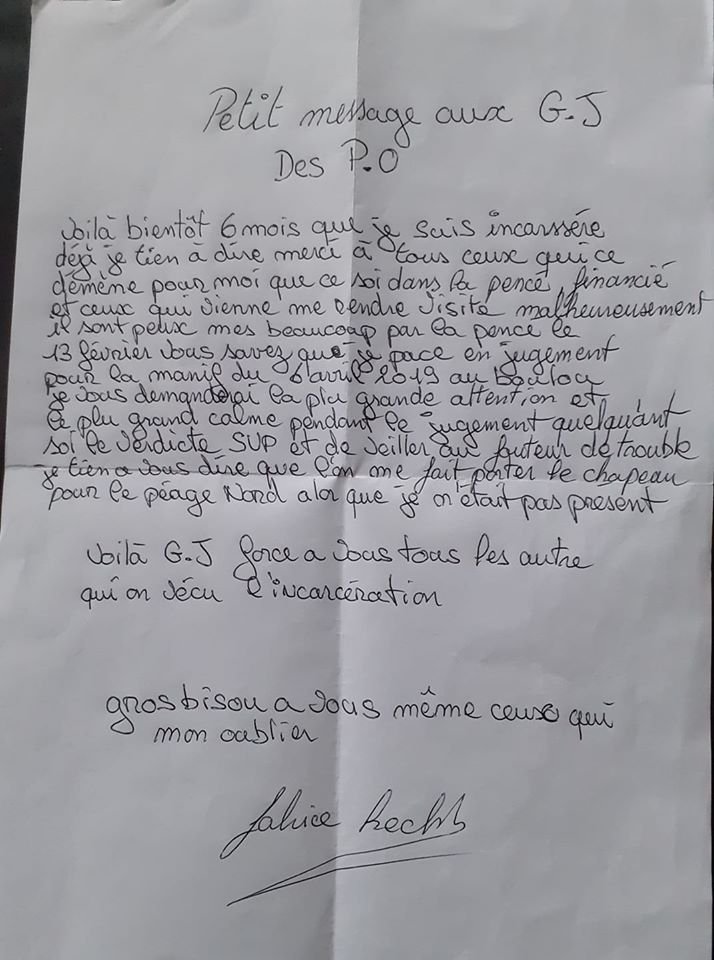 Petit message aux G.J
Des P.O
voilà bientôt 6 mois que je suis incarssére
déjà je tien à dire merci à tous ceux qui ce
démène pour moi que ce soi dans la pencé, financié
et ceux qui vienne me rendre visite malheureusement
il sont peux mes beaucoup par la pence le
13 février vous savez que je pace en jugement
pour la manif du 6 avril 2019 au boulou
je vous demanderai la plu grande attention et
le plu grand calme pendant le jugement quelquánt
soi le verdicte SUP et de veiller au fauteur de trouble
je tien a vous dire que l'on me fait porter le chapeau
pour le péage Nord alor que je n'était pas present
voilà G.J force a vous tous les autre
qui on vécu l'incarcération
gros bisou a vous même ceux qui
mon oublier